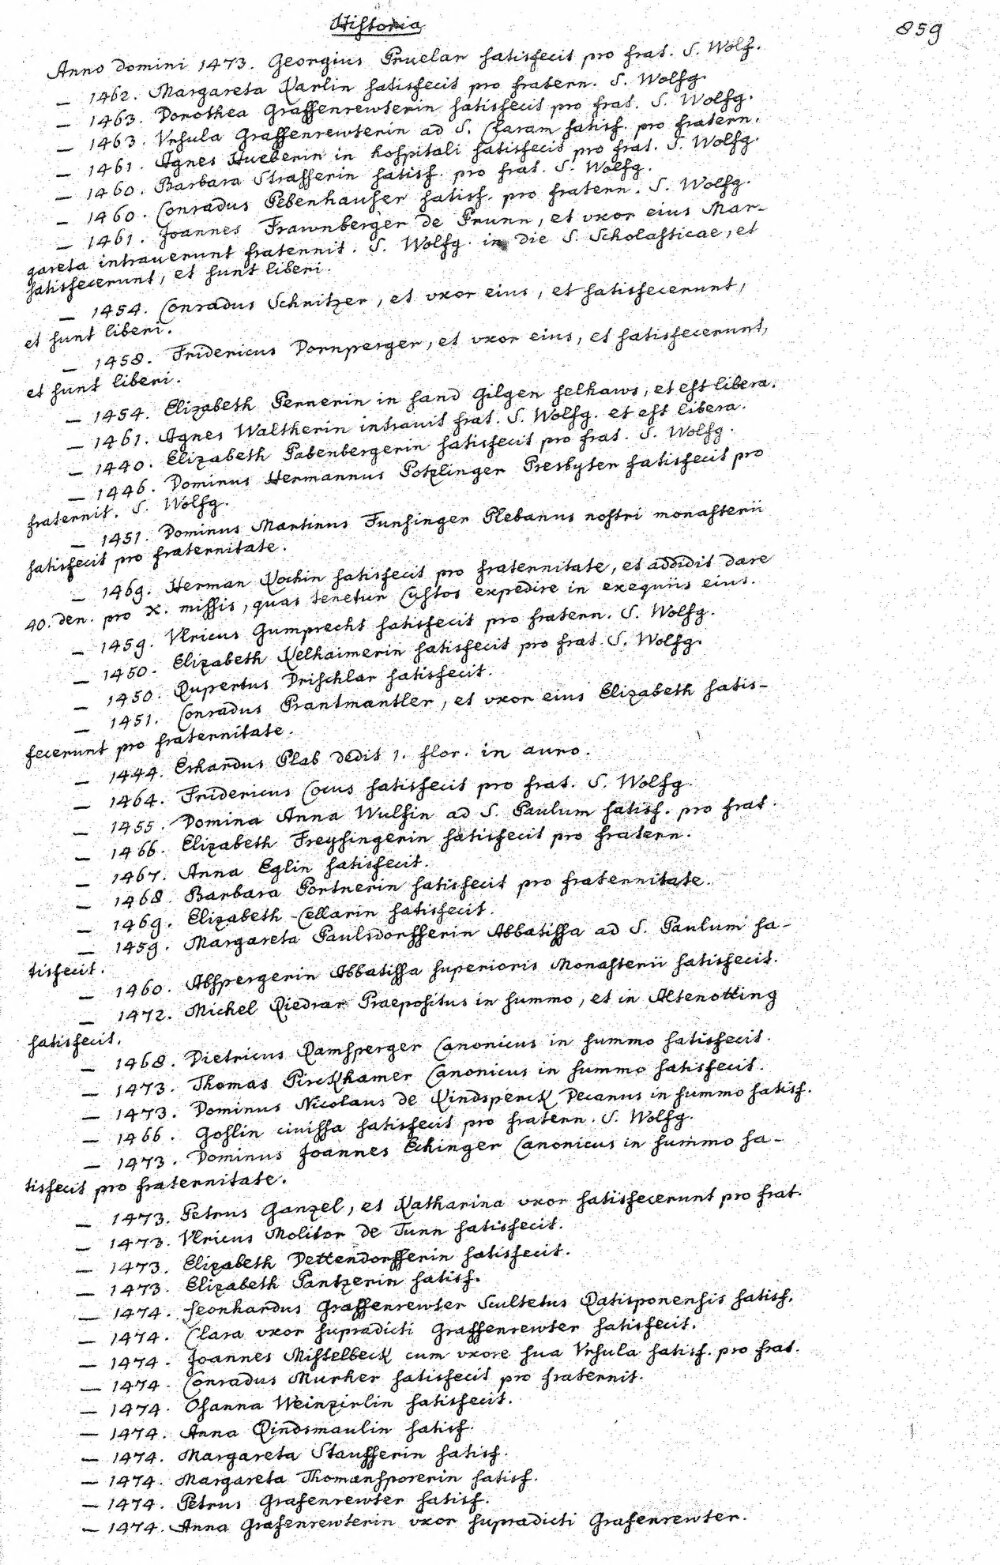 Historia
859
Anno domini 1473. Georgius Pruelar satisfecit pro frat. S. Wolf.
— 1462. Margareta Rarlin satisfecit pro fratern. S. Wolfg.
— 1463. Dorothea Graffenrewterin satisfecit pro frat. S. Wolfg.
— 1463. Vrsula Graffenrewterin ad S. Claram satisf. pro fratern.
— 1461. Agnes Hueberin in hospitali satisfecit pro frat. S. Wolfg.
— 1460. Barbara Strasserin satisf. pro frat. S. Wolfg.
— 1460. Conradus Pebenhauser satisf. pro fratern. S. Wolfg.
— 1461. Joannes Frawnberger de Prunn, et vxor eius Mar-
gareta intrauerunt fraternit. S. Wolfg. in die S. Scholasticae, et
satisfecerunt, et sunt liberi.
— 1454. Conradus Schnitzer, et vxor eius, et satisfecerunt,
et sunt liberi.
— 1458. Fridericus Dornperger, et vxor eius, et satisfecerunt,
et sunt liberi.
— 1454. Elizabeth Pernerin in sand Gilgen selhaws, et est libera.
— 1461. Agnes Waltherin intravit frat. S. Wolfg. et est libera.
— 1440. Elizabeth Pabenbergerin satisfecit pro frat. S. Wolfg.
— 1446. Dominus Hermannus Potzlinger Presbyter satisfecit pro
fraternit. S. Wolfg.
— 1451. Dominus Martinus Funsinger Plebanus nostri monasterii
satisfecit pro fraternitate.
— 1469. Herman Kochin satisfecit pro fraternitate, et addidit dare
40. den. pro X. missis, quas tenetur Custos expedire in exequiis eius.
— 1459. Vlricus Gumprecht satisfecit pro fratern. S. Wolfg.
— 1450. Elizabeth Kelhaimerin satisfecit pro frat. S. Wolfg.
— 1450. Rupertus Drischlar satisfecit.
— 1451. Conradus Prantmantler, et vxor eius Elizabeth satis-
fecerunt pro fraternitate.
— 1444. Erhardus Plab dedit 1. flor. in auro.
— 1464. Fridericus Cocus satisfecit pro frat. S. Wolfg.
— 1455. Domina Anna Wulfin ad S. Paulum satisf. pro frat.
— 1466. Elizabeth Freysingerin satisfecit pro fratern.
— 1467. Anna Eglin satisfecit.
— 1468. Barbara Portnerin satisfecit pro fraternitate.
— 1469. Elizabeth Cellarin satisfecit.
— 1459. Margareta Paulsdorfferin Abbatissa ad S. Paulum sa-
tisfecit.
— 1460. Abspergerin Abbatissa superioris Monasterii satisfecit.
— 1472. Michel Riedrar Praepositus in summo, et in Altenotting
satisfecit.
— 1468. Dietricus Ramsperger Canonicus in summo satisfecit.
— 1473. Thomas Pirckhamer Canonicus in summo satisfecit.
— 1473. Dominus Nicolaus de Kindsperck Decanus in summo satisf.
— 1466. Goslin civissa satisfecit pro fratern. S. Wolfg.
— 1473. Dominus Joannes Eckinger Canonicus in summo sa-
tisfecit pro fraternitate.
— 1473. Petrus Ganzel, et Katharina vxor satisfecerunt pro frat.
— 1473. Vlricus Molitor de Tunn satisfecit.
— 1473. Elizabeth Dettendorfferin satisfecit.
— 1473. Elizabeth Pantzerin satisf.
— 1474. Leonhardus Graffenrewter Scultetus Ratisponensis satisf.
— 1474. Clara vxor supradicti Graffenrewter satisfecit.
— 1474. Joannes Mistelbeck cum vxore sua Vrsula satisf. pro frat.
— 1474. Conradus Murher satisfecit pro fraternit.
— 1474. Osanna Weinzirlin satisfecit.
— 1474. Anna Rindsmaulin satisf.
— 1474. Margareta Staufferin satisf.
— 1474. Margareta Thomansporerin satisf.
— 1474. Petrus Grafenrewter satisf.
— 1474. Anna Grafenrewterin vxor supradicti Grafenrewter.